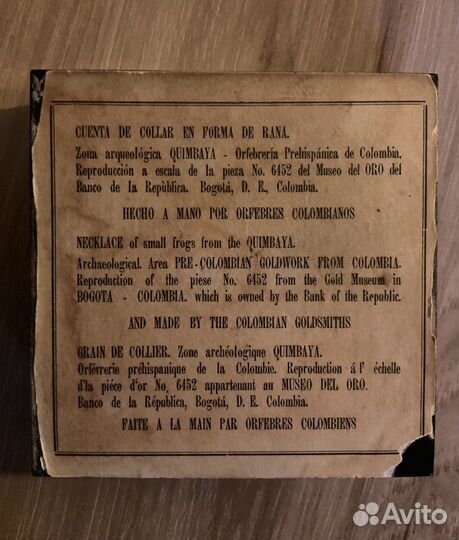 CUENTA DE COLLAR EN FORMA DE RANA.
Zona arqueológica QUIMBAYA - Orfebrería Prehispánica de Colombia.
Reproducción a escala de la pieza No. 6452 del Museo del ORO del
Banco de la Repùblica. Bogotá, D. E., Colombia.
HECHO A MANO POR ORFEBRES COLOMBIANOS
NECKLACE of small frogs from the QUIMBAYA.
Archaeological. Area PRE-COLOMBIAN GOLDWORK FROM COLOMBIA.
Reproduction of the piese No. 6452 from the Gold Museum in
BOGOTA - COLOMBIA. which is owned by the Bank of the Republic.
AND MADE BY THE COLOMBIAN GOLDSMITHS
GRAIN DE COLLIER. Zone archéologique QUIMBAYA.
Orfévrerie préhispanique de la Colombie. Reproduction á l' échelle
d'la piéce d'or No. 6452 appartenant au MUSEO DEL ORO.
Banco de la Répùblica, Bogotá, D. E. Colombia.
FAITE A LA MAIN PAR ORFEBRES COLOMBIENS
Avito